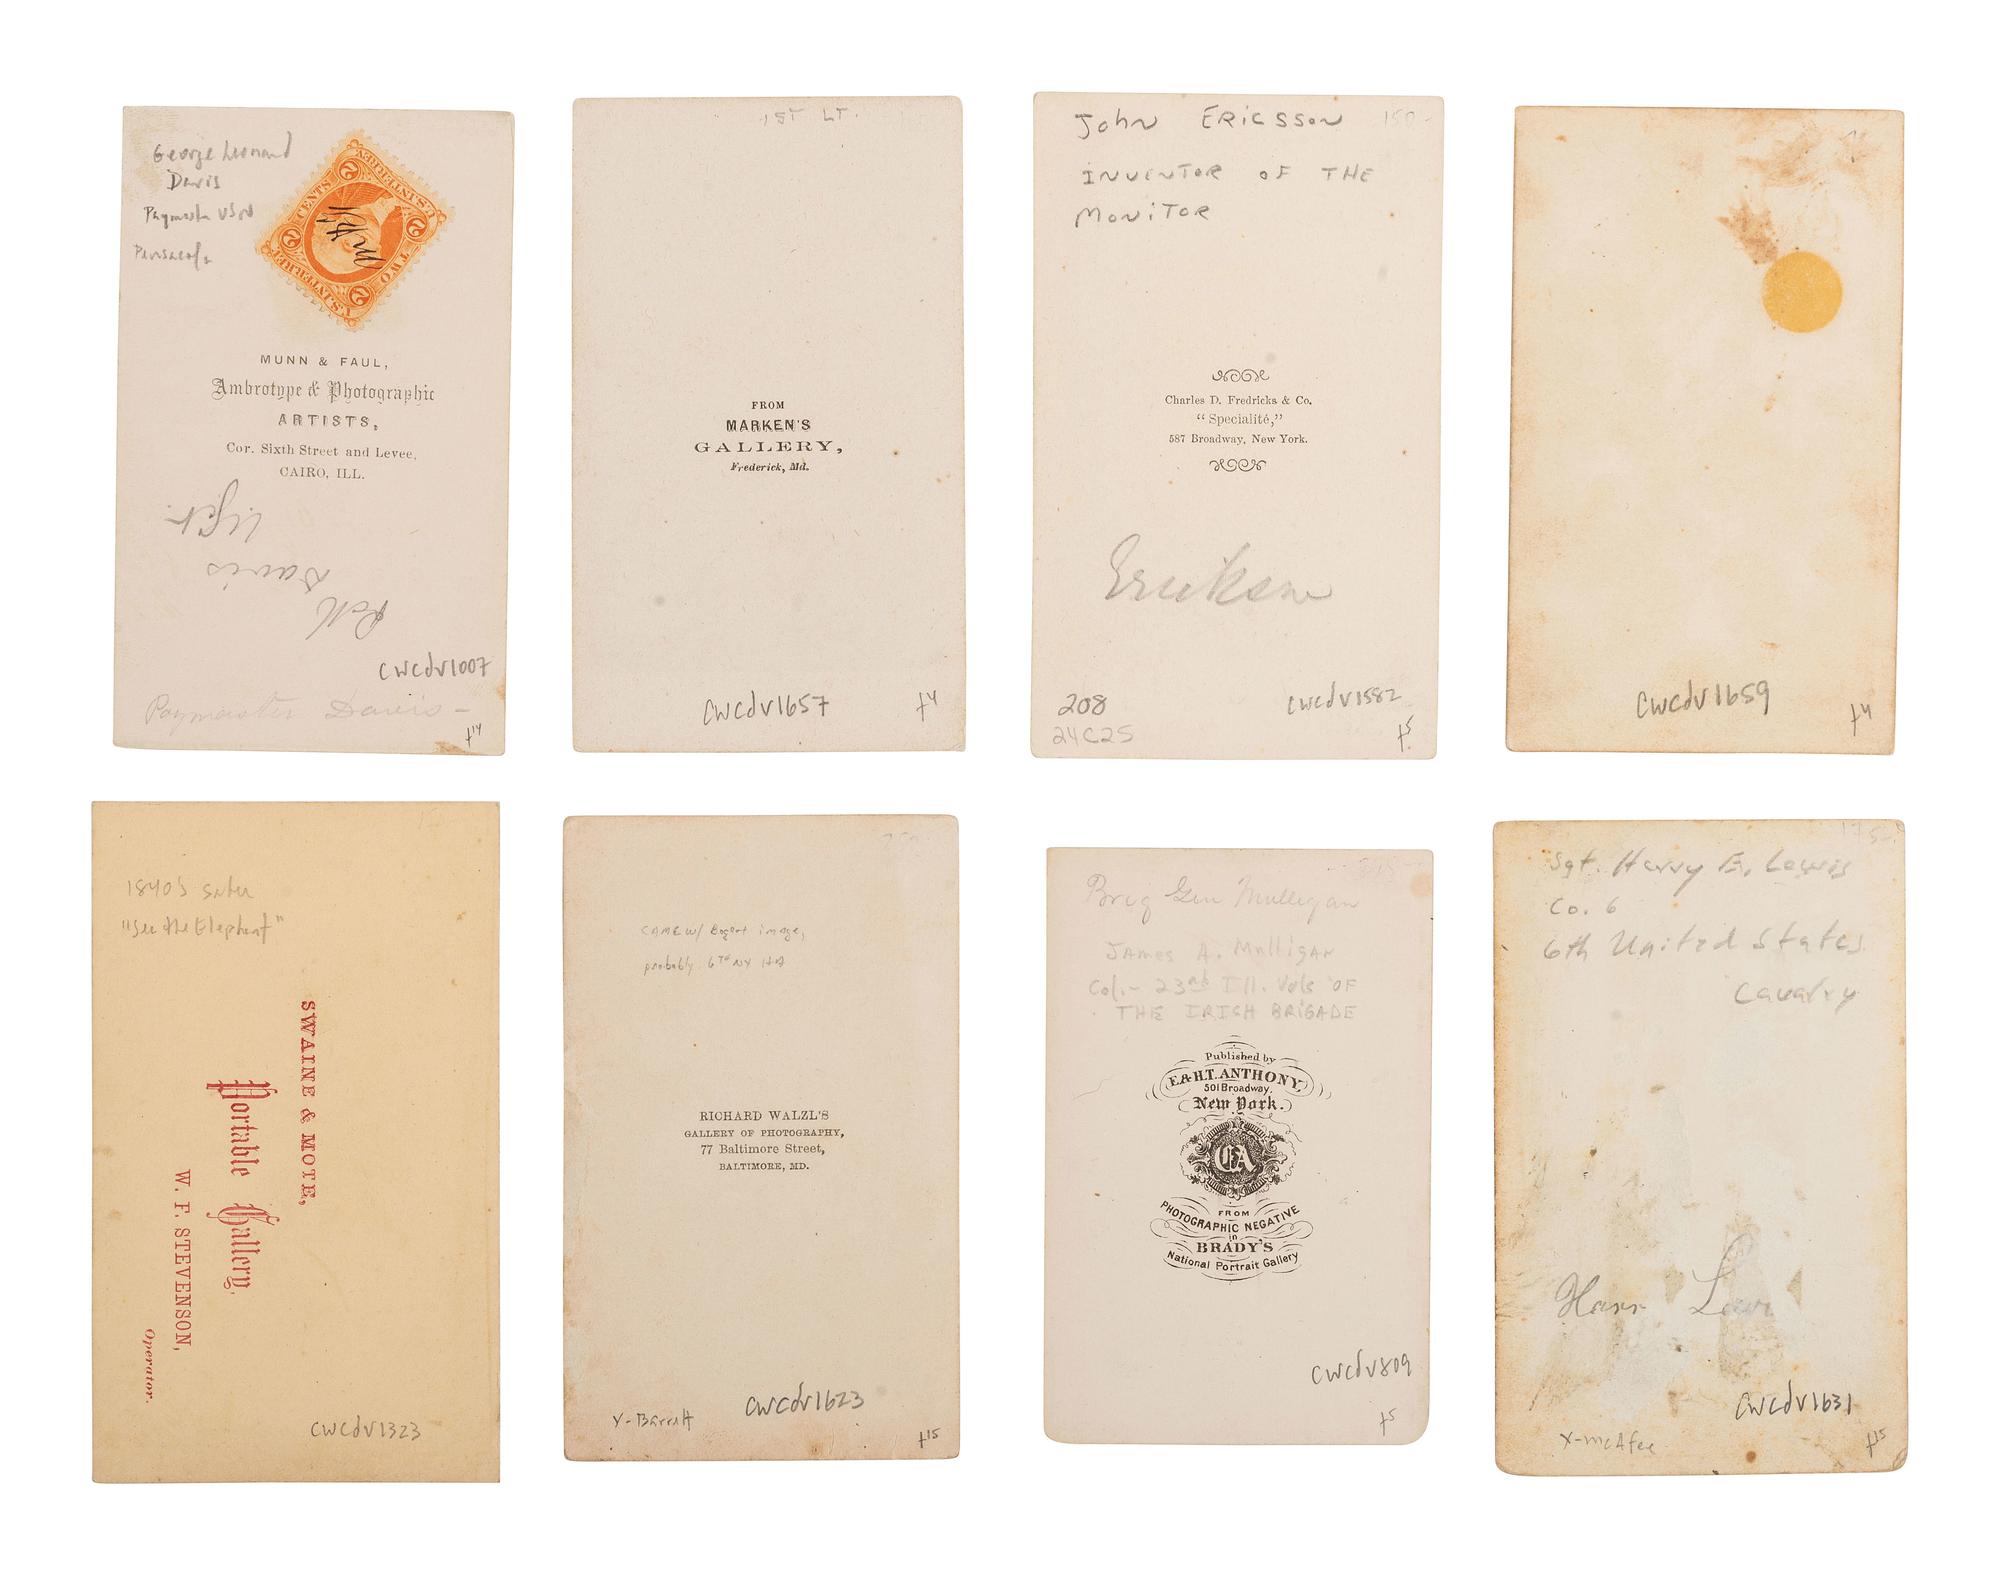 George Leonard
Davis
Paymaster USN
Pensacola
U.S. INTER. REV.
2 CENTS 2
2 TWO 2
MUNN & FAUL,
Ambrotype & Photographic
ARTISTS,
Cor. Sixth Street and Levee,
CAIRO, ILL.
Davis
cwcdv1007
Paymaster Davis -
1ST LT.
FROM
MARKEN'S
GALLERY,
Frederick, Md.
cwcdv1657
John ERICSSON 150-
INVENTOR OF THE
MONITOR
Charles D. Fredricks & Co.
"Specialité,"
587 Broadway, New York.
Eriksen
208
24C25
cwcdv1582
cwcdv1659
1840's
"See the Elephant"
SWAINE & MOTE,
Portable Gallery,
W. F. STEVENSON,
Operator.
cwcdv1323
CAME W/ Bogert image,
probably 6TH NY HA
RICHARD WALZL'S
GALLERY OF PHOTOGRAPHY,
77 Baltimore Street,
BALTIMORE, MD.
X-Barrett
cwcdv1623
Brig Gen Mulligan
JAMES A. MULLIGAN
Col.- 23rd Ill. Vols OF
THE IRISH BRIGADE
Published by
E. & H.T. ANTHONY,
501 Broadway,
New York.
EA
FROM
PHOTOGRAPHIC NEGATIVE
in
BRADY'S
National Portrait Gallery
cwcdv809
175-
Sgt. Harry E. Lewis
Co. 6
6th United States
Cavalry
cwcdv1631
X-McAfee